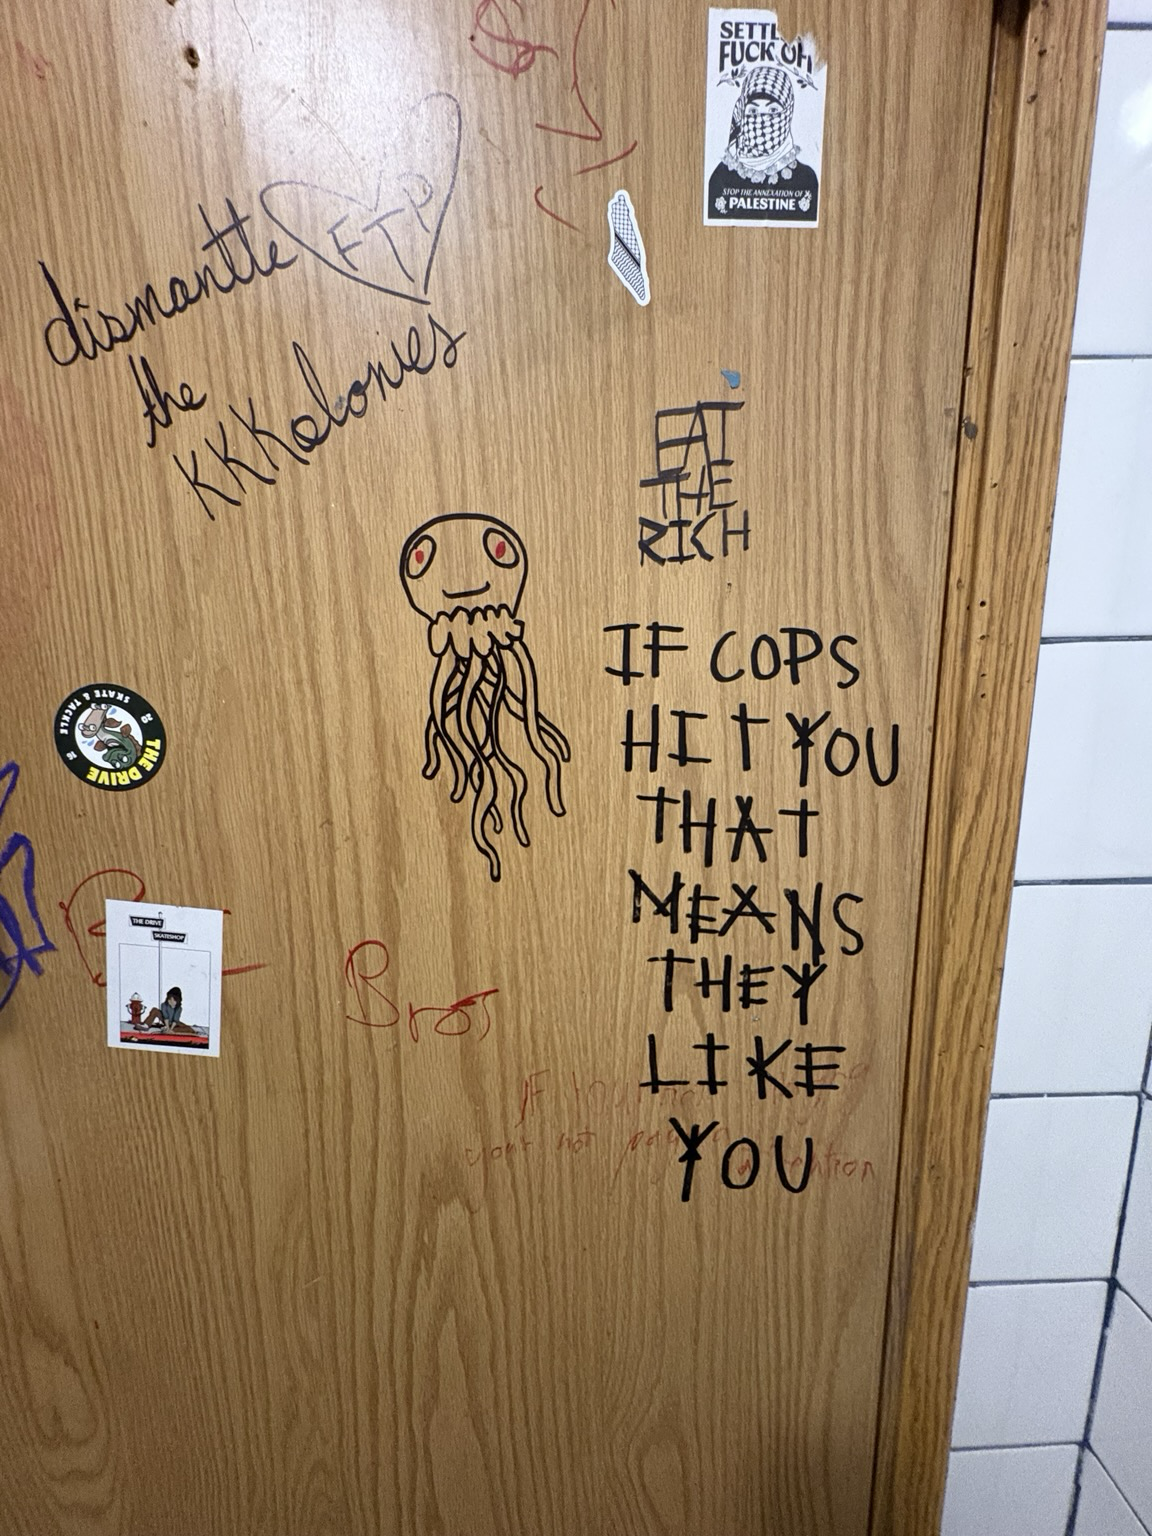 FUCK OFF
STOP THE ANNEXATION OF
PALESTINE
dismantle
FTP
the
KKKolonies
EAT
THE
RICH
IF COPS
HIT YOU
THAT
MEANS
THEY
LIKE
YOU
SKATE & TACKLE
THE DRIVE
THE DRIVE
SKATESHOP
your not